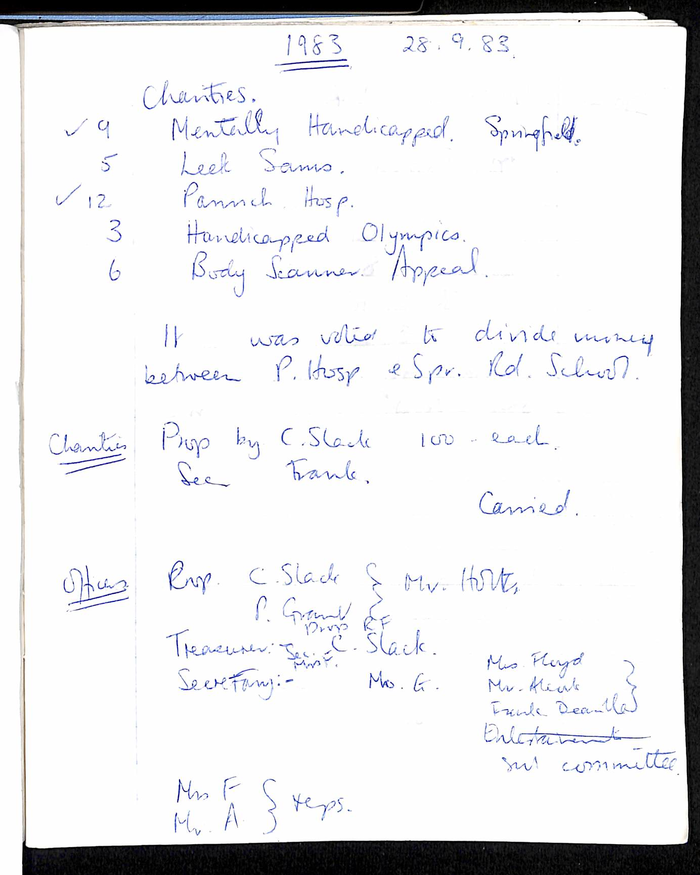 1983 28.9.83.
Charities.
✓ 9 Mentally Handicapped. Springfield.
5 Leek Sams.
✓ 12 Pannich Hosp.
3 Handicapped Olympics.
6 Body Scanner Appeal.
It was voted to divide money
between P. Hosp & Spr. Rd. School.
Charities Prop by C. Slack 100 - each.
Sec Frank.
Carried.
Officers Prop. C. Slack } Mr. Holt
P. Grant
Prop R F
Treasurer:- C. Slack.
Sec. Mrs F.
Secretary:- Mrs. G.
Mrs Floyd
Mr.
Frank
Entertainment
sub committee.
Mrs F } reps.
Mr. A